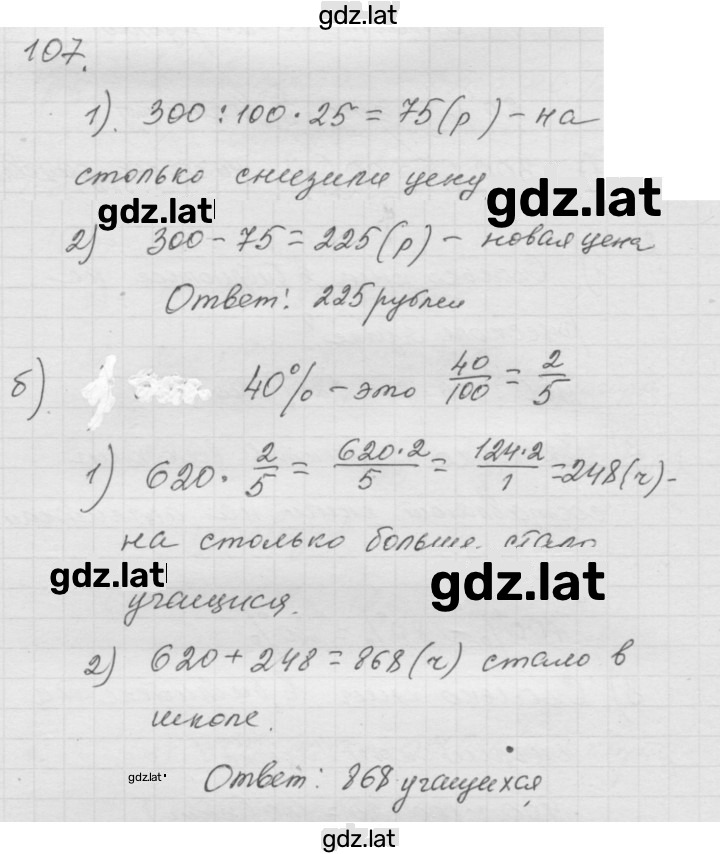 gdz.lat
107.
1). 300 : 100 · 25 = 75(р) - на
столько снизили цену
gdz.lat
gdz.lat
2) 300 - 75 = 225(р) - новая цена
Ответ: 225 рублей
б) 40% - это 40/100 = 2/5
1) 620 · 2/5 = 620·2/5 = 124·2/1 = 248(ч) -
на столько больше стало
gdz.lat
gdz.lat
учащихся.
2) 620 + 248 = 868(ч) стало в
школе.
gdz.lat
Ответ: 868 учащихся
gdz.lat